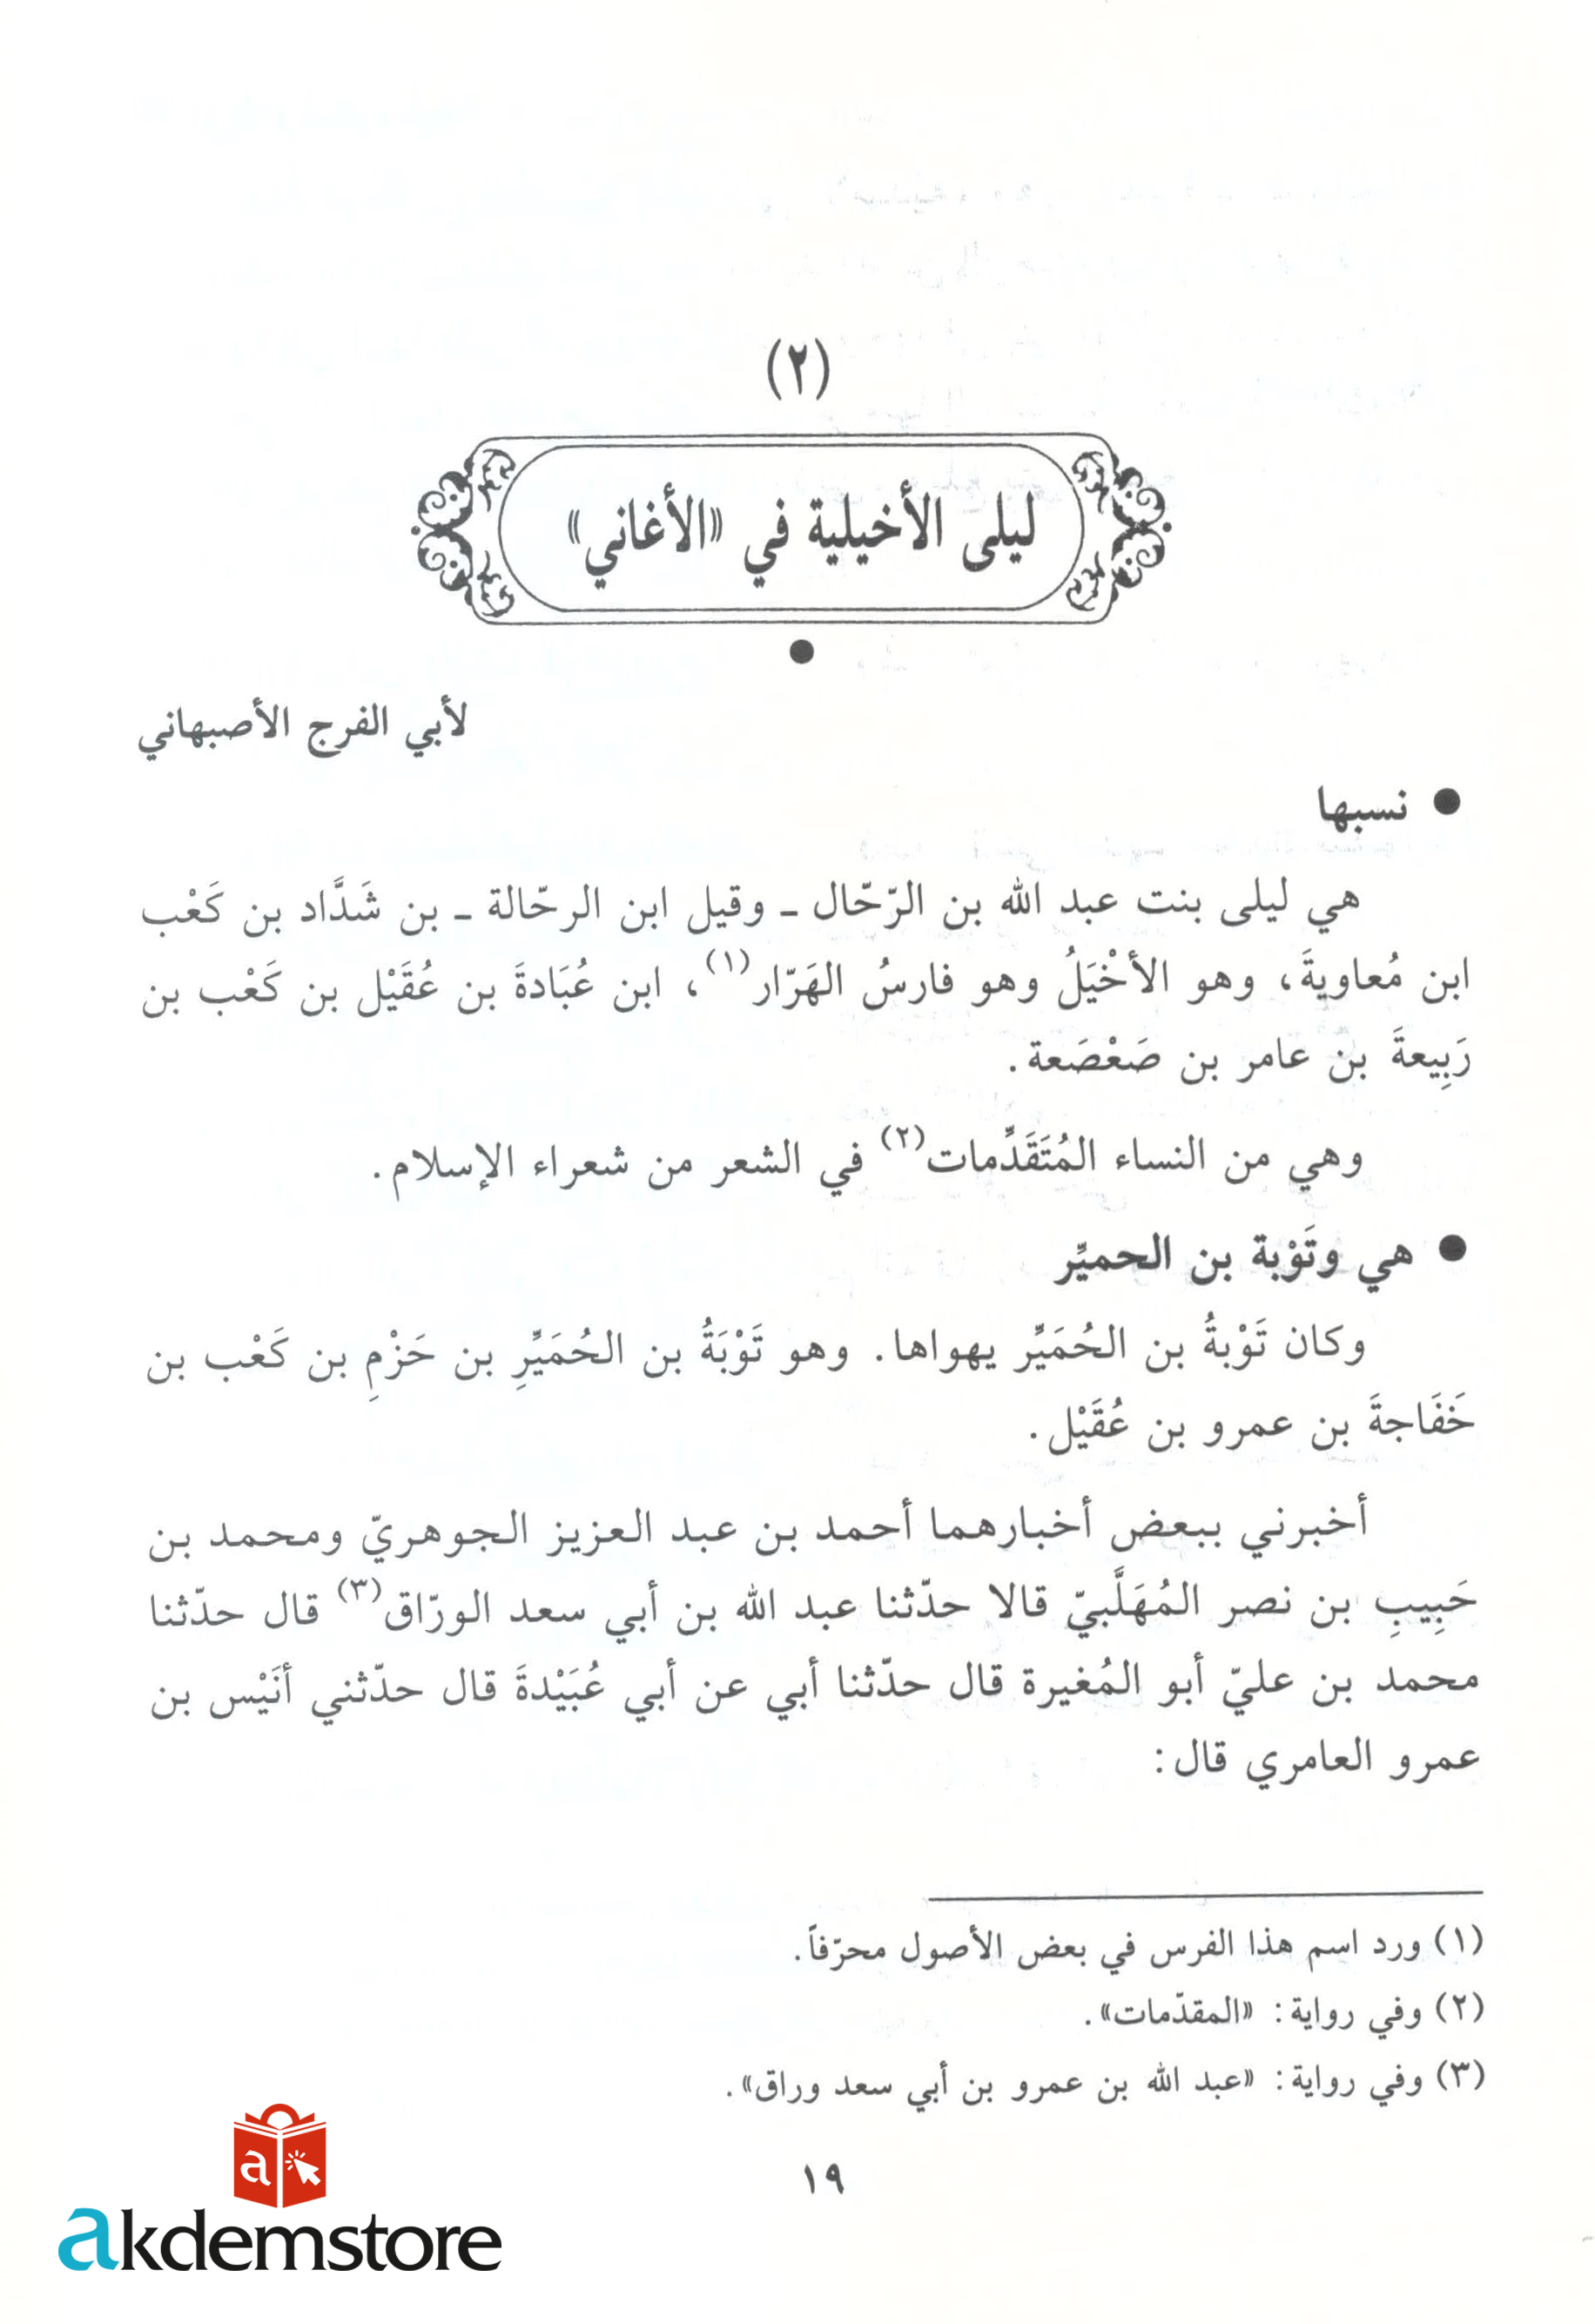 (٢)
ليلى الأخيلية في «الأغاني»
لأبي الفرج الأصبهاني
● نسبها
هي ليلى بنت عبد الله بن الرّحّال ـ وقيل ابن الرحّالة ـ بن شَدَّاد بن كَعْب
ابن مُعاويةَ، وهو الأخْيَلُ وهو فارسُ الهَرّار(١)، ابن عُبَادةَ بن عُقَيْل بن كَعْب بن
رَبِيعةَ بن عامر بن صَعْصَعة.
وهي من النساء المُتَقَدِّمات(٢) في الشعر من شعراء الإسلام.
● هي وتَوْبة بن الحميِّر
وكان تَوْبةُ بن الحُمَيِّر يهواها. وهو تَوْبَةُ بن الحُمَيِّرِ بن حَزْمِ بن كَعْب بن
خَفَاجةَ بن عمرو بن عُقَيْل.
أخبرني ببعض أخبارهما أحمد بن عبد العزيز الجوهريّ ومحمد بن
حَبِيبِ بن نصر المُهَلَّبيّ قالا حدّثنا عبد الله بن أبي سعد الورّاق(٣) قال حدّثنا
محمد بن عليّ أبو المُغيرة قال حدّثنا أبي عن أبي عُبَيْدةَ قال حدّثني أنَيْس بن
عمرو العامري قال:
(١) ورد اسم هذا الفرس في بعض الأصول محرّفاً.
(٢) وفي رواية: «المقدّمات».
(٣) وفي رواية: «عبد الله بن عمرو بن أبي سعد وراق».
١٩
a
akdemstore